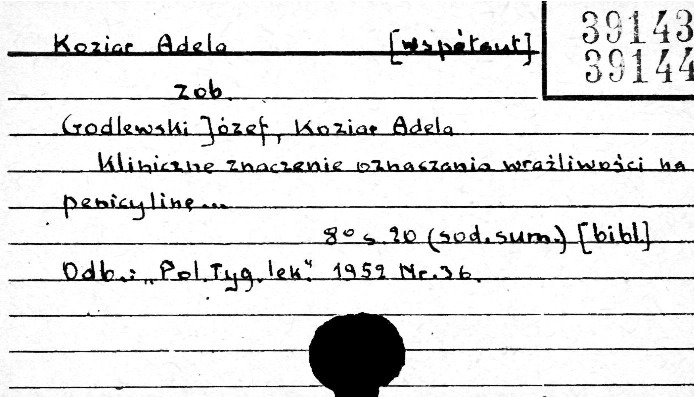 Koziar Adela [współaut]
39143
39144
zob.
Godlewski Józef, Koziar Adela
Kliniczne znaczenie oznaczania wrażliwości na
penicylinę...
8° s. 20 (sod.sum.) [bibl.]
Odb.: „Pol.Tyg.lek." 1952 Nr.36.